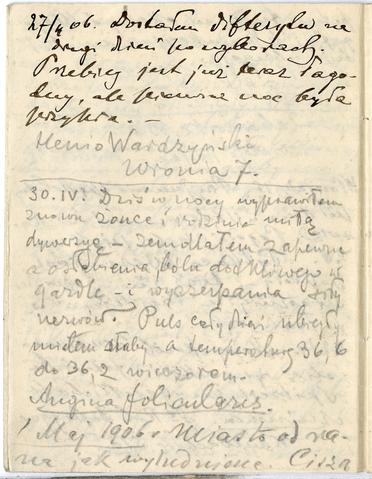 27/4 06. Dostałam difterytu na
drugi dzień po wyborach.
Przebieg jest już teraz łago-
dny, ale pierwsza noc była
przykra. —
Henio Wardzyński
Wronia 7.
30.IV. Dziś w nocy wyprawiłem
znowu żonce i rodzinie miłą
dywersyę – zemdlałem zapewne
z osłabienia, bólu dotkliwego w
gardle – i wyczerpania siły
nerwów. Puls cały dzień ubiegły
miałem słaby – a temperaturę 36,6
do 36,2 wieczorem.
Angina folicularis.
1 Maj 1906. Miasto od ra-
na jak wyludnione. Cisza